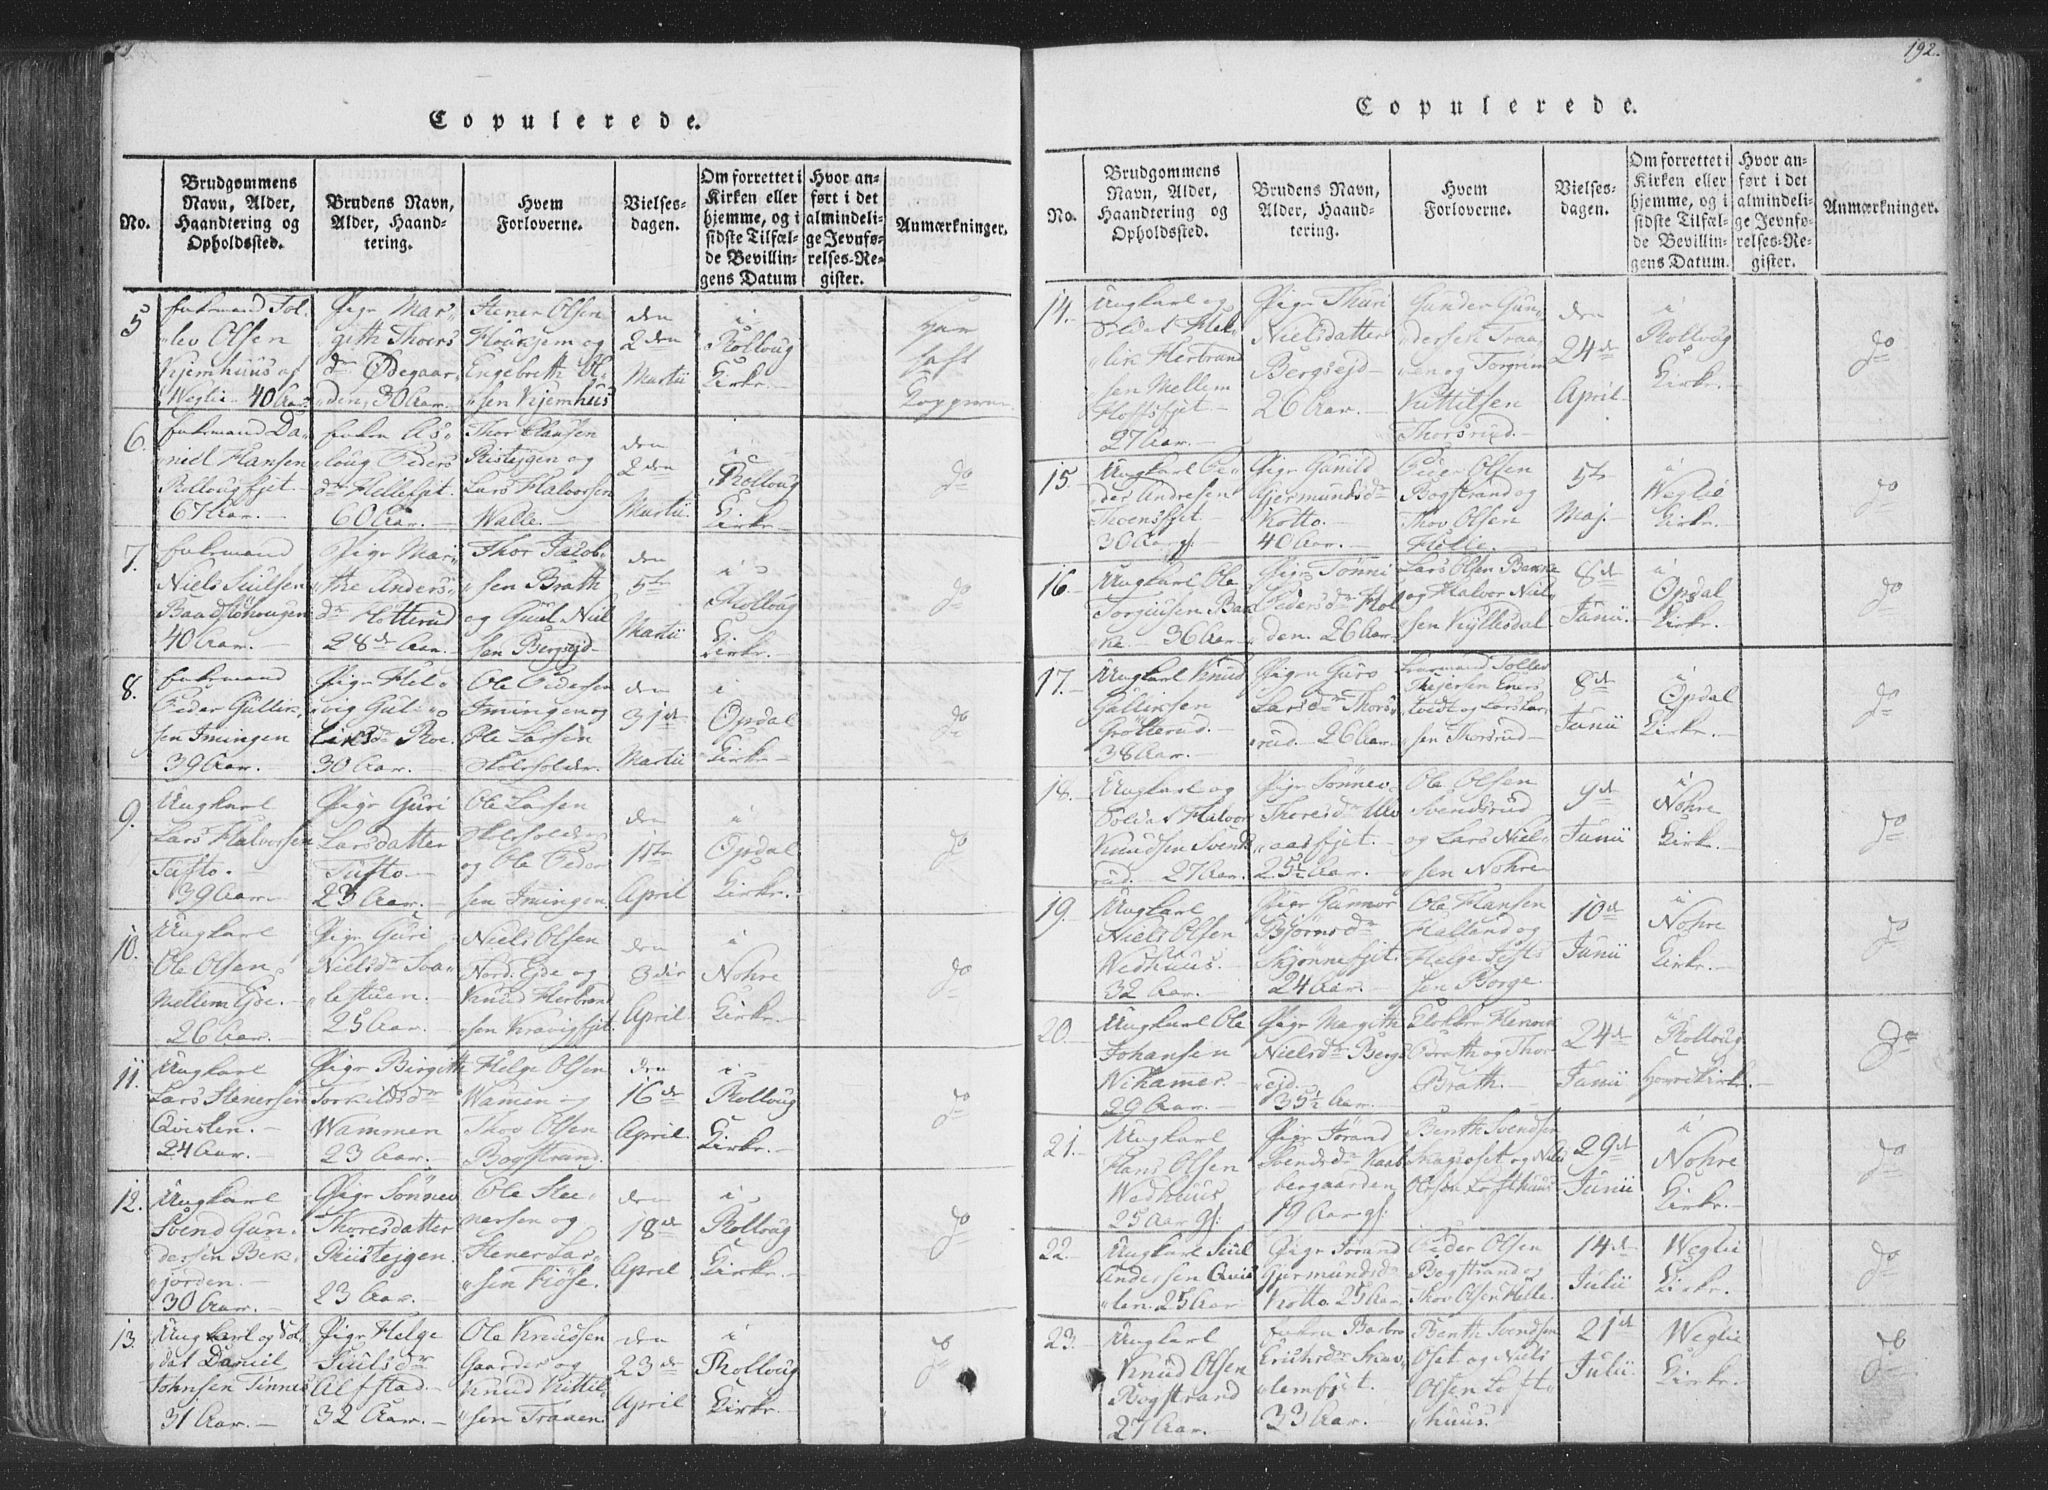 192.
Copulerede.
No.
Brudgommens Navn, Alder, Haandtering og Opholdssted.
Brudens Navn, Alder, Haandtering.
Hvem Forloverne.
Vielsesdagen.
Om forrettet i Kirken eller hjemme, og i sidste Tilfælde Bevillingens Datum
Hvor anført i det almindelige Jevnførelses-Register.
Anmærkninger.
5
Enkemand Tol-
lev Olsen
Kjemhuus af
Weglie 40 Aar
Pige Mar-
gith Thoers
dr Ødegaar-
den, 30 Aar.
Stener Olsen
og
Engebreth Ol-
sen Kjemhus
den
2den
Martii
i
Rolloug
Kirke.
har
haft
Kopperne
6.
Enkemand Da-
niel Hansen
Rollougfjet.
67 Aar.
Enken As-
loug Peders
dr Hellefjet.
60 Aar.
Thor Hansen
Ristejgen og
Lars Halvorsen
Walle.
den
2den
Martii.
i
Rolloug
Kirke.
do
7.
Enkemand
Niels Juulsen
40 Aar.
Pige Mar-
the Anders-
dr
28de Aar.
Thor Jacob-
sen Brath
og Guul Niel
sen Bergsejd
den
5te
Martii
i
Rolloug
Kirke.
do
8.
Enkemand
Peder Gullik-
sen Imingen
39 Aar.
Pige Hel-
vig Gul-
liksdr Roe.
30 Aar.
Ole Pedersen
Imingen og
Ole Larsen
Skolsolden.
den
31de
Martii
i
Opdal
Kirke
do
9.
Ungkarl
Lars Halvorsen
Tufto.
39 Aar.
Pige Guri
Larsdatter
Tufto.
23 Aar.
Ole Larsen
Skolsolden
og Ole Peder
sen Imingen.
den
1ste
April
i
Opdal
Kirke.
do
10.
Ungkarl
Ole Olsen
Mellem Ejde.
26 Aar.
Pige Guri
Nielsdr Sva-
lestuen.
25 Aar.
Niels Olsen
Nord: Ejde og
Knud Herbrand
sen Kravigfjet.
den
3die
April
i
Nohre
Kirke.
do
11.
Ungkarl
Lars Stenersen
Qvislen.
24 Aar.
Pige Birgith
Torkildsdr
Wammen
23 Aar.
Helge Olsen
Wamen
Thov Olsen
Bogstrand.
den
16de
April.
i
Rolloug
Kirke.
do
12.
Ungkarl
Svend Gun-
dersen Bek-
jorden.
30 Aar.
Pige Sønnev
Thoresdatter
Ruistejgen.
23 Aar.
Ole Ste-
nersen og
Stener Lar-
sen Kiøse.
den
18de
April
i
Rolloug
Kirke.
do
13.
Ungkarl og Sol-
dat Daniel
Johnsen Tinnes
31 Aar.
Pige Helge
Juulsdr
Alfstad.
32 Aar.
Ole Knudsen
Gaarder og
Knud Kittil-
sen Traaen.
den
23de
April
i
Rolloug
Kirke.
do
Copulerede.
No.
Brudgommens Navn, Alder, Haandtering og Opholdssted.
Brudens Navn, Alder, Haandtering.
Hvem Forloverne.
Vielsesdagen.
Om forrettet i Kirken eller hjemme, og i sidste Tilfælde Bevillingens Datum.
Hvor anført i det almindelige Jevnførelses-Register.
Anmærkninger.
14.
Ungkarl og
Soldat Hel-
lik Herbrand
sen Mellem
Hoffsfjet.
27 Aar.
Pige Thuri
Nielsdatter
Bergsejd
26 Aar.
Gunder Gun-
dersen Traa-
en og Torgrim
Kittilsen
Thorsrud.
den
24de
April
i
Rolloug
Kirke.
do
15.
Ungkarl Pe-
der Andresen
Thoensfjet.
30 Aar gl:
Pige Gunild
Gjermundsdr
Kotto.
40 Aar.
Peder Olsen
Bogstrand og
Thov Olsen
Helle.
5te
Maj.
i
Weglie
Kirke.
do
16.
Ungkarl Ole
Torgiusen Bak-
ke. 36 Aar
Pige Tønni
Pedersdr Hol
den. 26 Aar
Lars Olsen Bakke
og Halvor Niel-
sen Kyllesdal
8de
Junii.
i
Opdal
Kirke.
do
17.
Ungkarl Knud
Gulliksen
Grøtterud.
38 Aar.
Pigen Guro
Larsdr Thors-
rud. 26 Aar.
Tollev
Thijersen Eners-
tvedt og Lars Lar-
sen Thorsrud
8de
Junii
i
Opdal
Kirke.
do
18.
Ungkarl og
Soldat Halvor
Knudsen Svends
rud. 27 Aar.
Pige Sønnev
Thoresdr Ulv-
aasfjet.
25½ Aar.
Ole Olsen
Svendsrud
og Lars Niel-
sen Nohre
9de
Junii
i
Nohre
Kirke.
do
19.
Ungkarl
Niels Olsen
Wedhuus.
32 Aar.
Pige Gunnor
Bjørnsdr
Skjønnefjet.
24 Aar.
Ole Hansen
Halland og
Helge Jefs
sen Borge.
10de
Junii
i
Nohre
Kirke.
do
20.
Ungkarl Ole
Johansen
Nihamer.
29 Aar.
Pige Margith
Nielsdr Bergs
ejd.
35½ Aar.
Klokker Henrik
Porath og Thor
Brath.
24de
Junii
i
Rolloug
Hovedkirke.
do
21.
Ungkarl
Hans Olsen
Wedhuus
25 Aar gl:
Pige Jørand
Svendsdr Kaab-
bergaarden
19 Aar gl:
Benth Svendsen
og Niels
Olsen Lofthuus
29de
Junii
i
Nohre
Kirke.
do
22.
Ungkarl Juul
Andersen Qvis
len. 25 Aar
Pige Jørand
Gjermundsdr
Kotto. 25 Aar.
Peder Olsen
Bogstrand og
Thov Olsen Helle.
14de
Julii
Weglie
Kirke.
do
23.
Ungkarl
Knud Olsen
Bogstrand
27 Aar.
Enken Barbro
Erichsdr
lemfjet.
33 Aar.
Benth Svendsen
Oset og Niels
Olsen Loft-
huus.
21de
Julii
Weglie
Kirke.
do